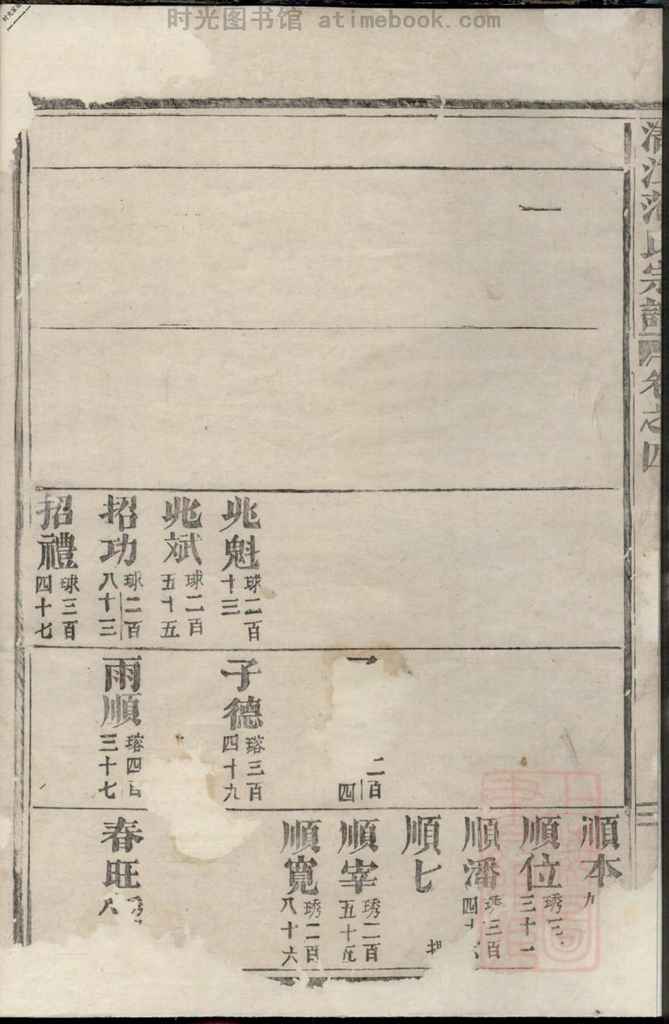 时光图书馆 atimebook.com
氏宗譜
卷之四
一
兆魁 球二百十三
兆斌 球二百五十五
招功 球二百八十三
招禮 球三百四十七
二百 四
子德 瑢三百四十九
雨順 瑢四百三十七
順本 九
順位 琇三 三十一
順潘 琇三百四十六
順七
順宰 琇二百五十五
順寬 琇二百八十六
春旺 八